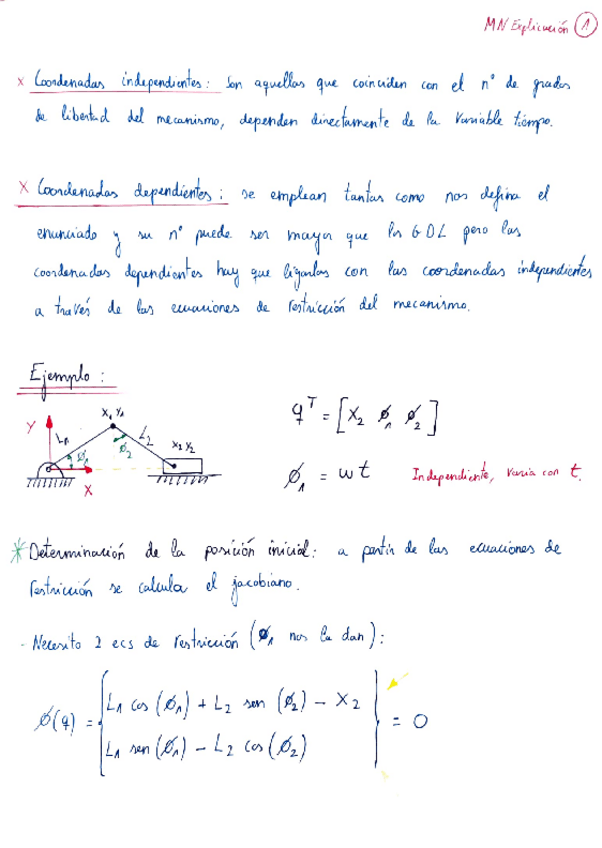 MN Explicación 1
x Coordenadas independientes: Son aquellas que coinciden con el nº de grados
de libertad del mecanismo, dependen directamente de la variable tiempo.
x Coordenadas dependientes: se emplean tantas como nos defina el
enunciado y su nº puede ser mayor que los GDL pero las
coordenadas dependientes hay que ligarlas con las coordenadas independientes
a través de las ecuaciones de restricción del mecanismo.
Ejemplo:
Y L₁ ø₁ X₁ Y₁ L₂ ø₂ X₂ Y₂ X
qᵀ = [X₂ ø₁ ø₂]
ø₁ = wt Independiente, varía con t.
* Determinación de la posición inicial: a partir de las ecuaciones de
restricción se calcula el jacobiano.
- Necesito 2 ecs de restricción (ø₁ nos la dan):
ø(q) = { L₁ cos (ø₁) + L₂ sen (ø₂) - X₂
L₁ sen (ø₁) - L₂ cos (ø₂) } = 0